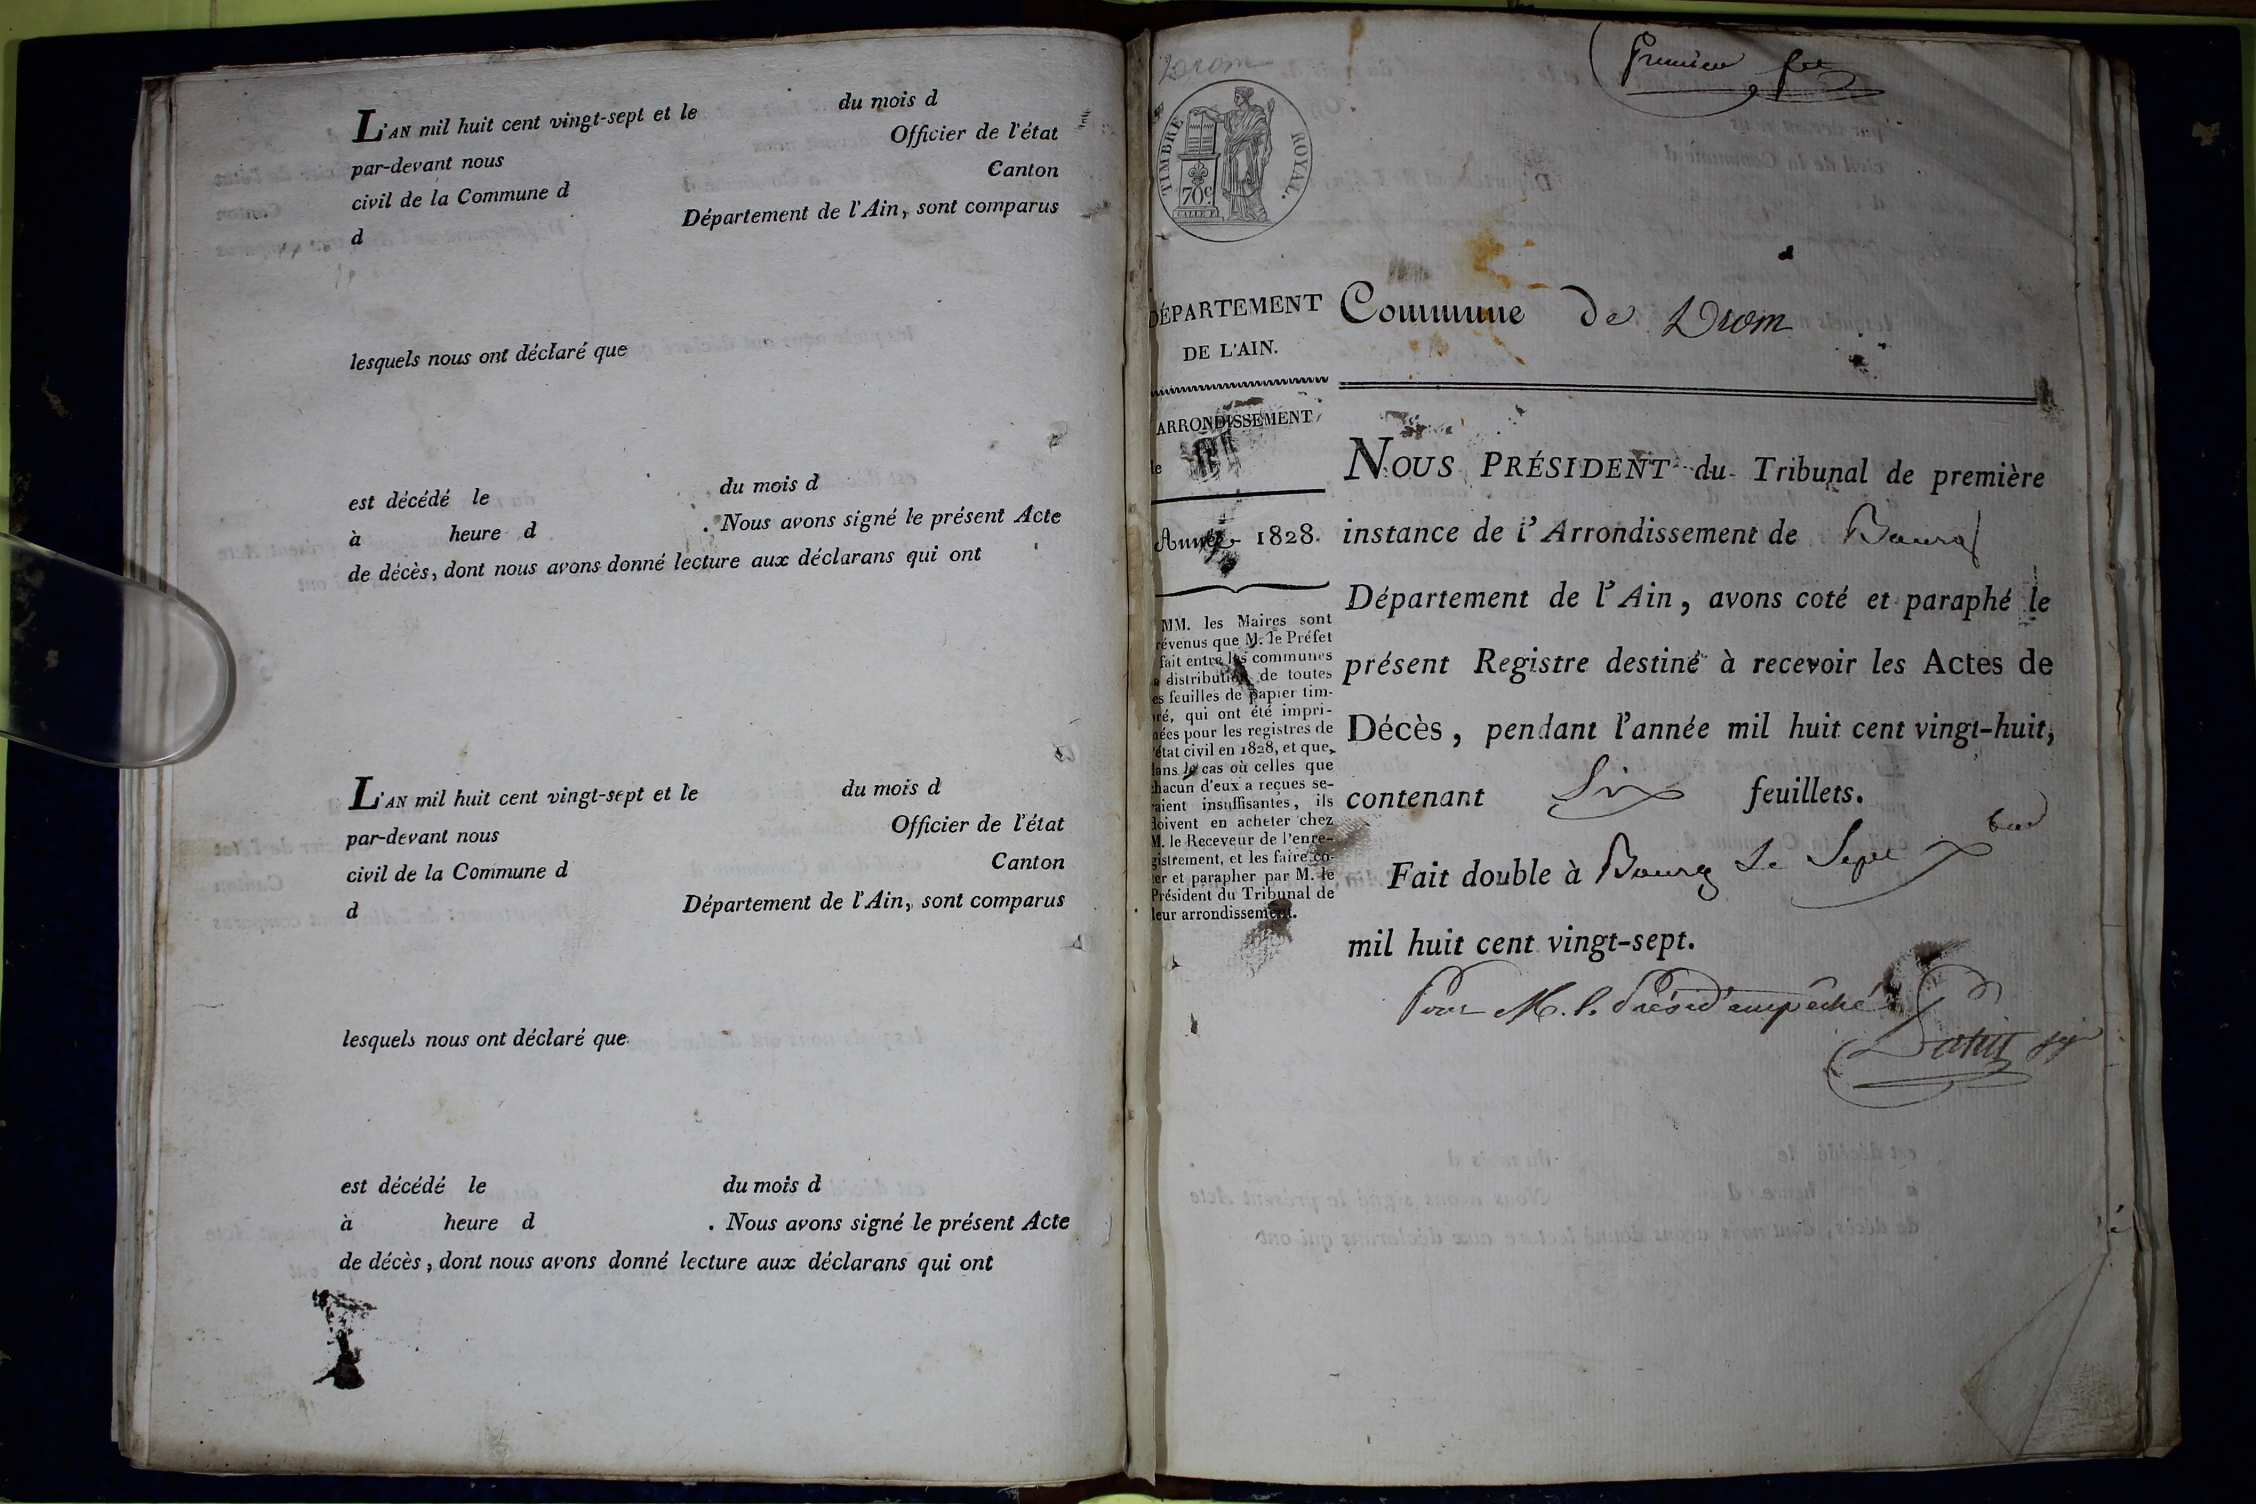 L'AN mil huit cent vingt-sept et le du mois d
par-devant nous Officier de l'état
civil de la Commune d Canton
d Département de l'Ain, sont comparus
lesquels nous ont déclaré que
est décédé le du mois d
à heure d . Nous avons signé le présent Acte
de décès, dont nous avons donné lecture aux déclarans qui ont
L'AN mil huit cent vingt-sept et le du mois d
par-devant nous Officier de l'état
civil de la Commune d Canton
d Département de l'Ain, sont comparus
lesquels nous ont déclaré que
est décédé le du mois d
à heure d . Nous avons signé le présent Acte
de décès, dont nous avons donné lecture aux déclarans qui ont
Drom
Premier
TIMBRE ROYAL.
70c
DÉPARTEMENT
DE L'AIN.
ARRONDISSEMENT
de
Année 1828.
MM. les Maires sont
révenus que M. le Préfet
fait entre les communes
distribution de toutes
es feuilles de papier tim-
ré, qui ont été impri-
ées pour les registres de
état civil en 1828, et que,
ans le cas où celles que
hacun d'eux a reçues se-
aient insuffisantes, ils
doivent en acheter chez
M. le Receveur de l'enre-
gistrement, et les faire co-
er et parapher par M. le
Président du Tribunal de
leur arrondissement.
Commune de Drom
NOUS PRÉSIDENT du Tribunal de première
instance de l'Arrondissement de Bourg
Département de l'Ain, avons coté et paraphé le
présent Registre destiné à recevoir les Actes de
Décès, pendant l'année mil huit cent vingt-huit,
contenant Six feuillets.
Fait double à Bourg Le Sept Xbre
mil huit cent vingt-sept.
Pour M. le Présid' empêché